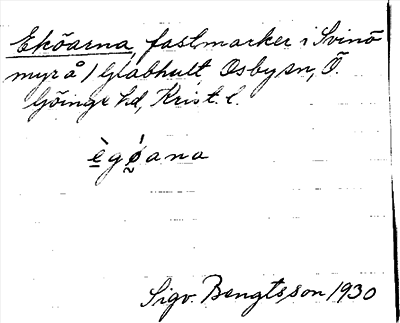 Eköarna, fastmarker i Svinö
myr å / Grabhult, Osby sn, Ö.
Göinge hd, Krist. l.
ègǿana
Sigv. Bengtsson 1930